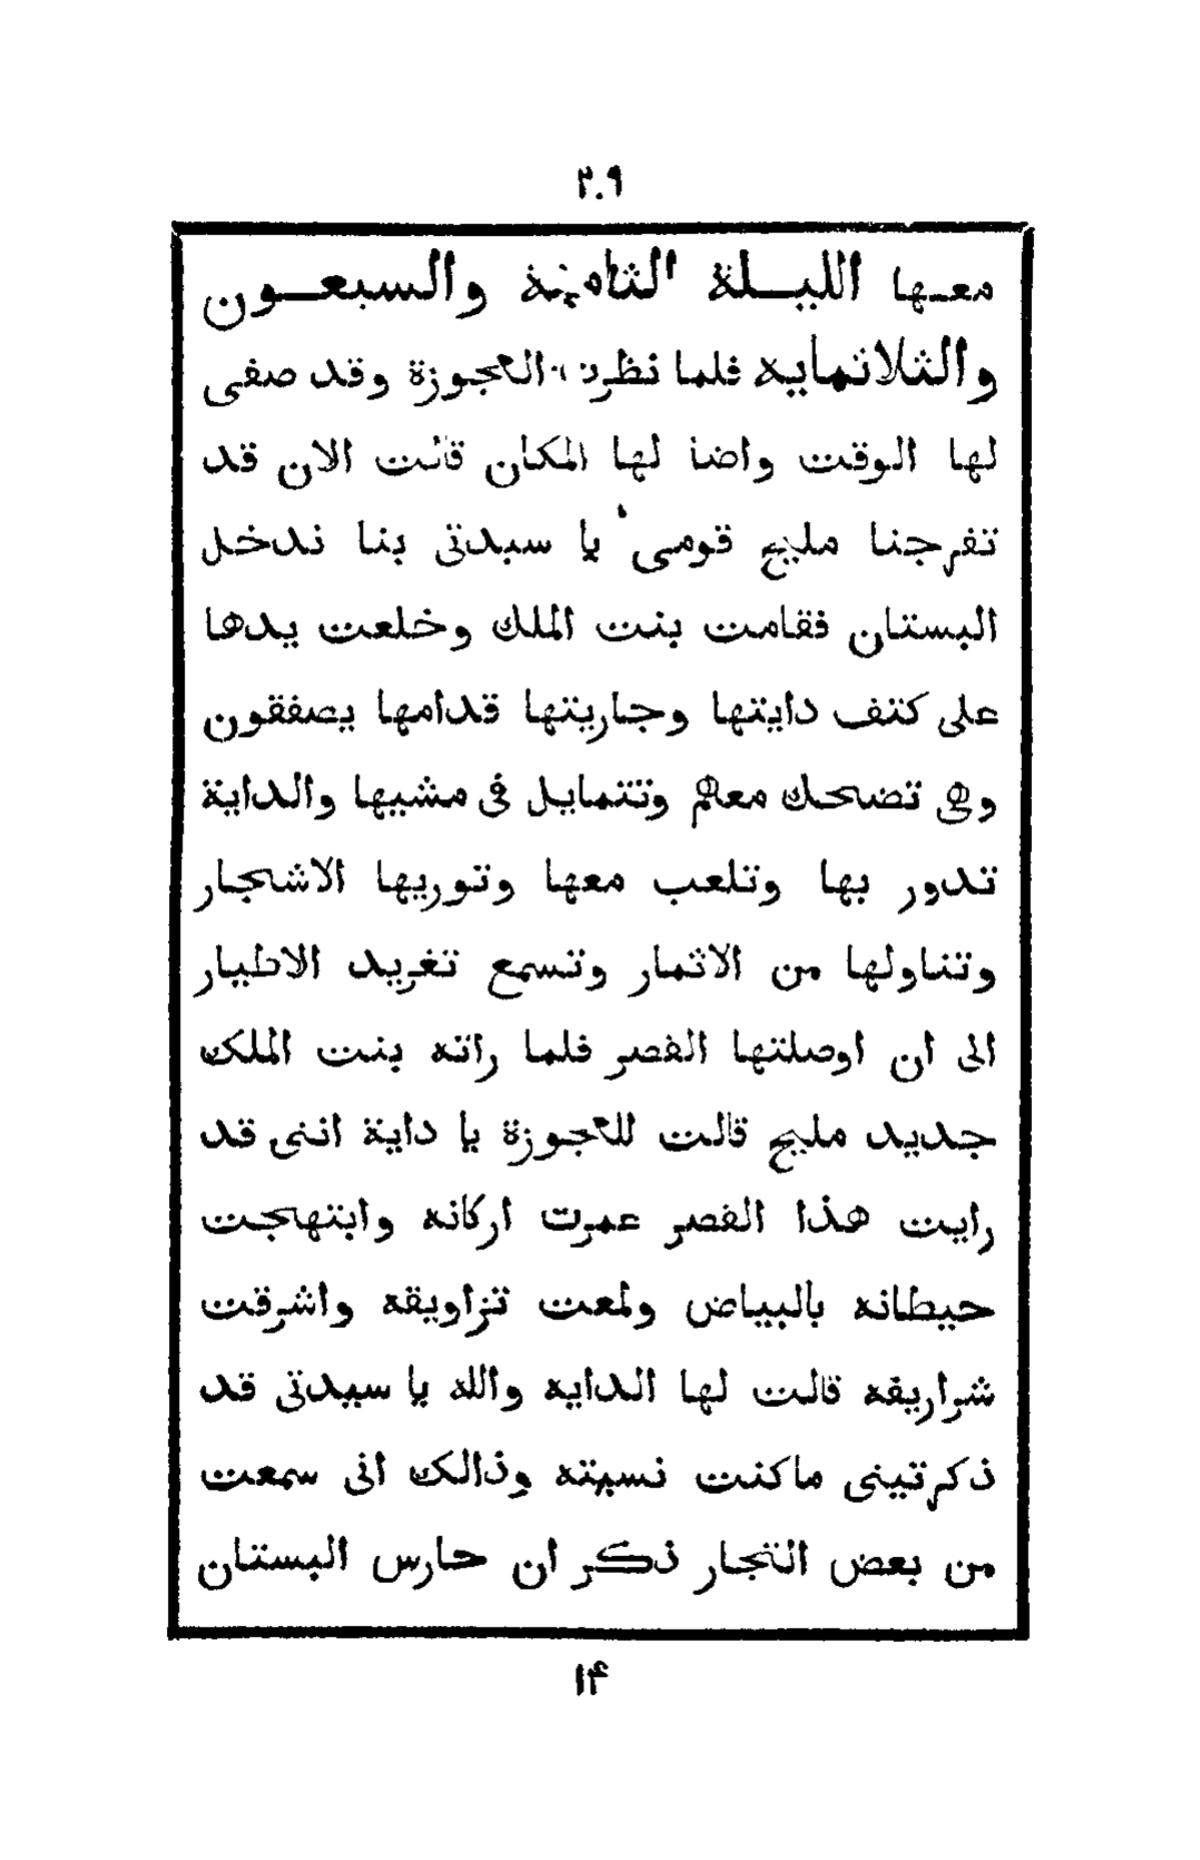 ٢٠٩
معها الليلة الثامنة والسبعون
والثلاثمايه فلما نظرت العجوزة وقد صفى
لها الوقت واضا لها المكان قالت الان قد
تفرجنا مليح قومى يا سيدتى بنا ندخل
البستان فقامت بنت الملك وخلعت يدها
على كتف دايتها وجاريتها قدامها يصفقون
وهى تضحك معهم وتتمايل فى مشيها والداية
تدور بها وتلعب معها وتوريها الاشجار
وتناولها من الاثمار وتسمع تغريد الاطيار
الى ان اوصلتها القصر فلما راته بنت الملك
جديد مليح قالت للعجوزة يا داية اننى قد
رايت هذا القصر عمرت اركانه وابتهجت
حيطانه بالبياض ولمعت تزاويقه واشرقت
شراريفه قالت لها الدايه والله يا سيدتى قد
ذكرتينى ما كنت نسيته وذالك انى سمعت
من بعض التجار ذكر ان حارس البستان
١۴